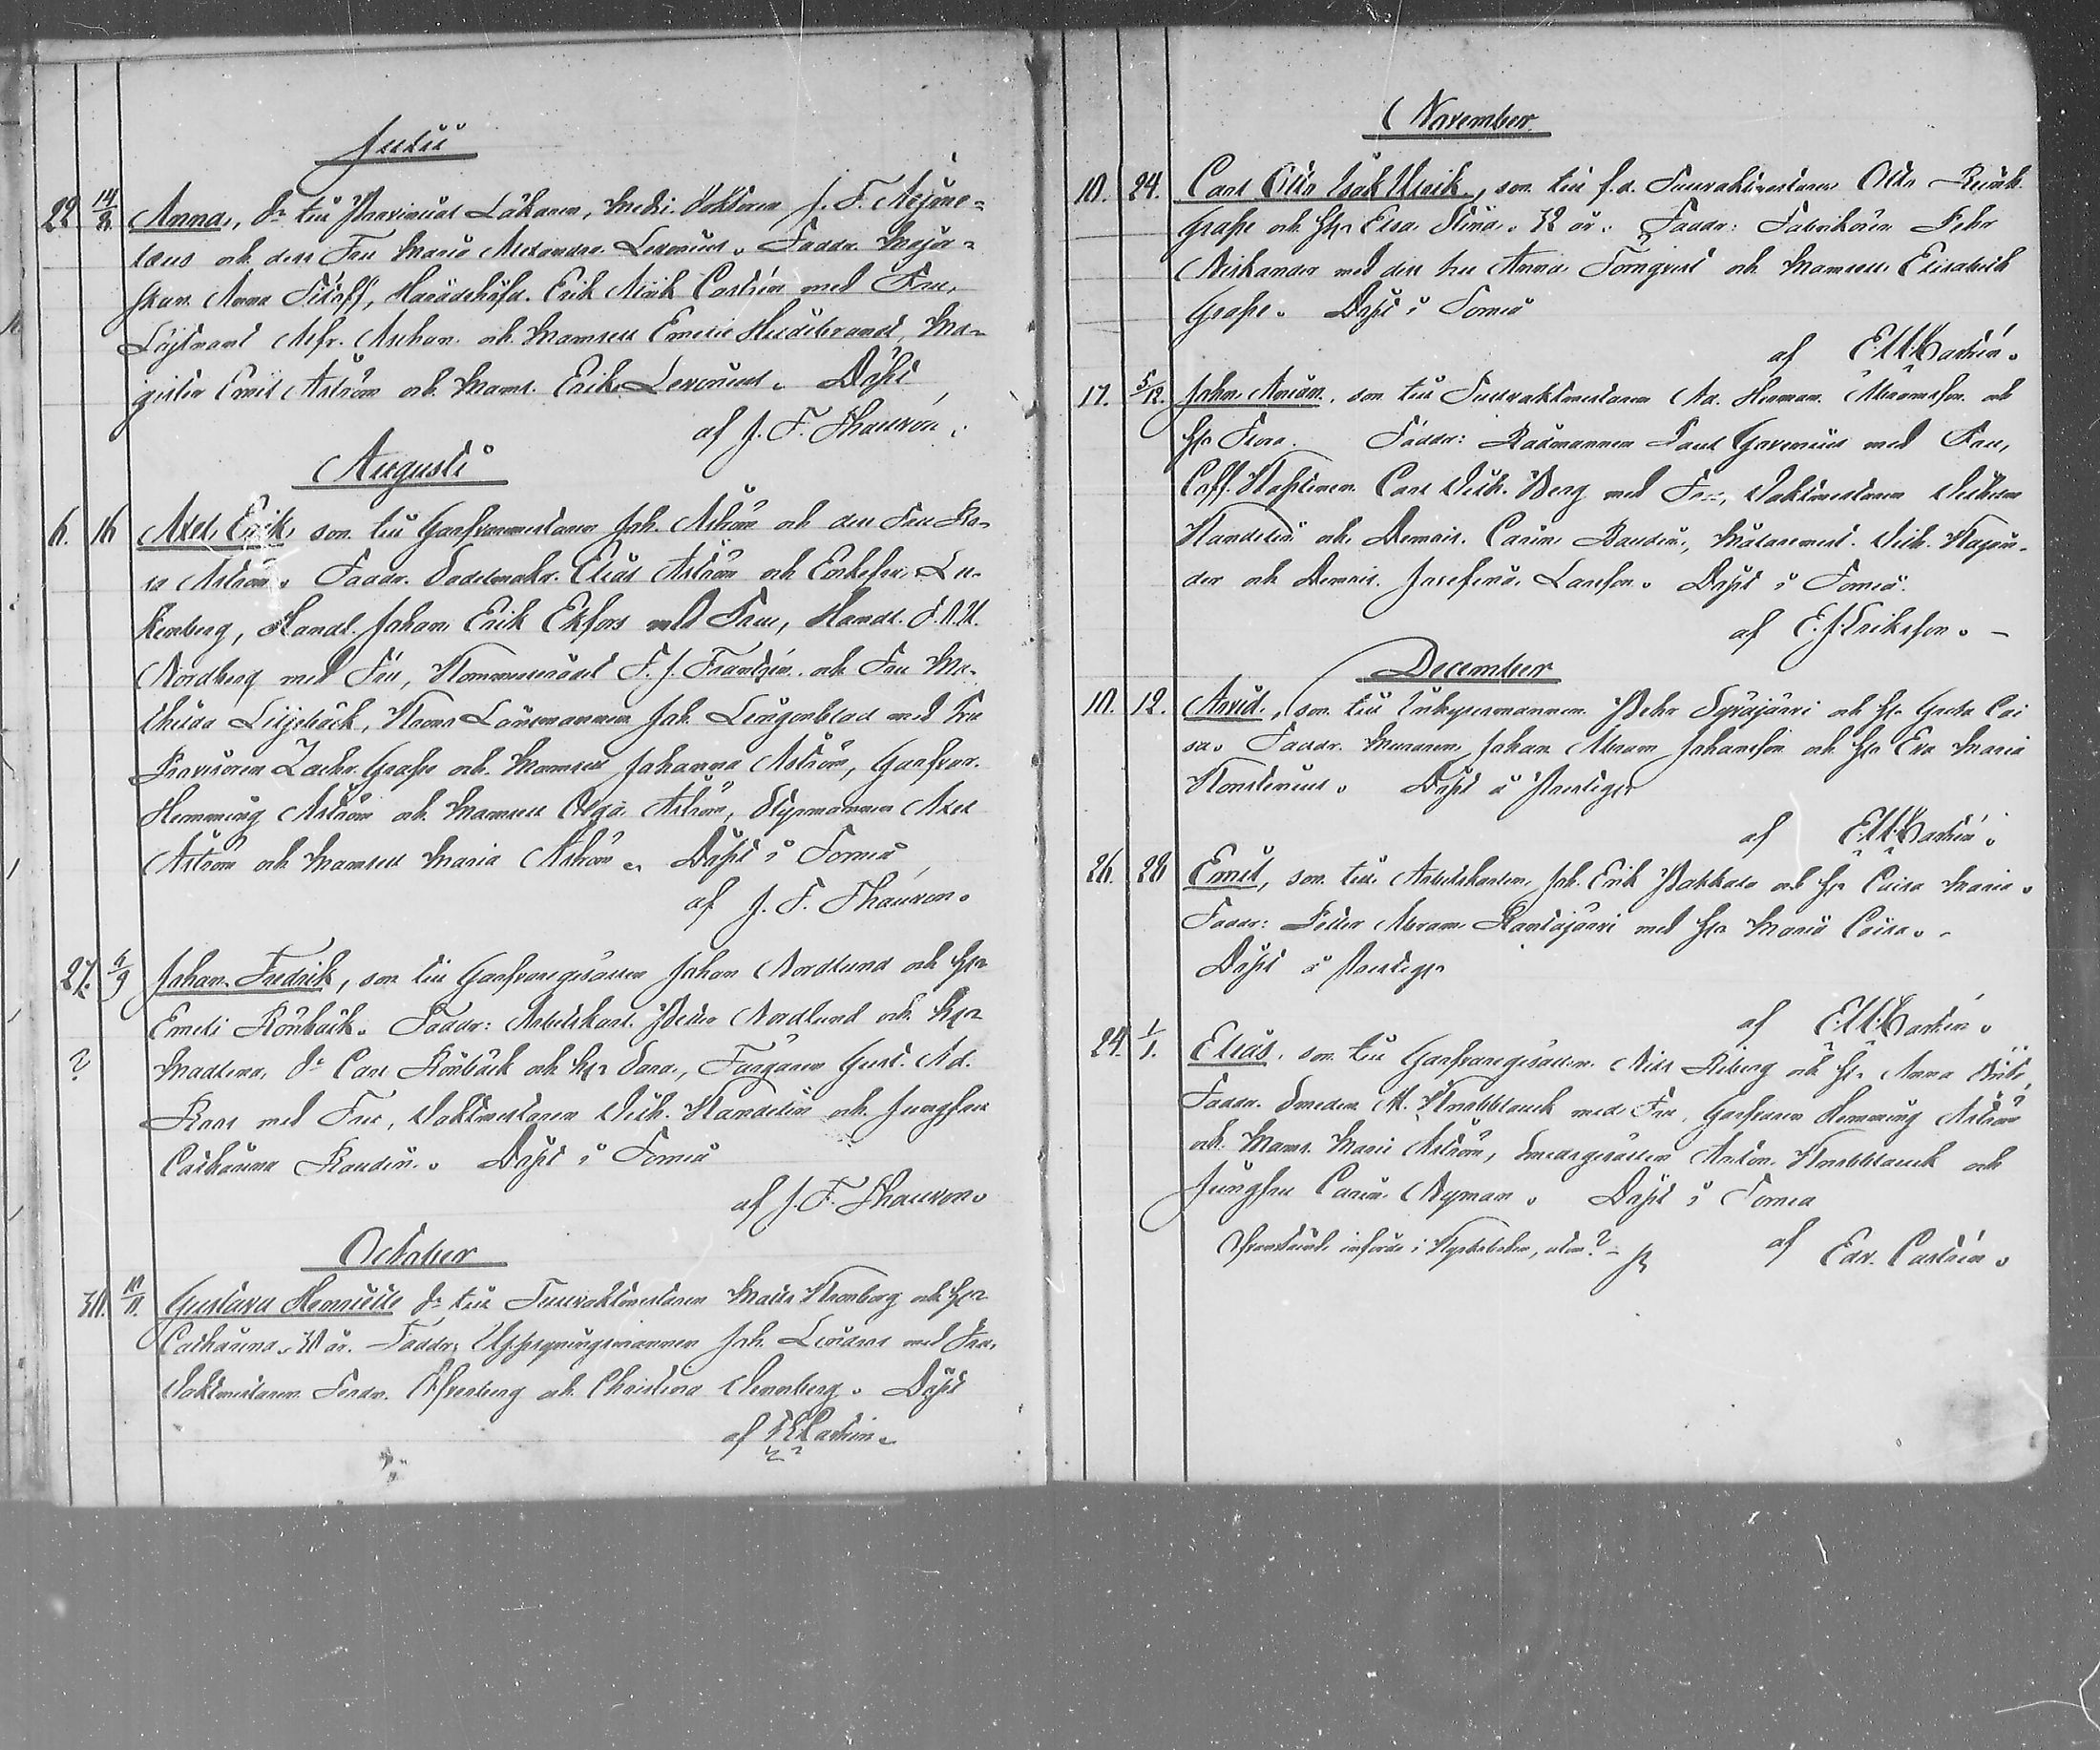 Julii
22 14/8 Anna, dr till Provincial Läkaren, Medic. Doktoren J. F.
læus och dess Fru Maria Alexandra Levonius. Faddr. Major-
skan Anna Häradshöfd. Erik Castrén med Fru,
Löjtnant Alfr. Aschan och Mamsell Emelie Heddebrandt, Ma-
gister Emil Åström och Mams. Erika Levonius. Döpt
af J. F. Thauvón.
Augusti
6. 16 Axel Erik, son till Garfvaremästaren Joh. Åström och dess Fru Ro-
sa Åström. Faddr. Sadelmakr. Elias Åström och Enkefru
kenberg, Handl. Johan Erik Ekfors med Fru, Handl.
Nordberg med Fru, Kommerserådet F. J. Frantzén och Fru Ma-
thilda Liljebäck, Krono Länsmannen Joh. Ljungonblad med Fru
Provisoren Zachr. Grape och Mamsell Johanna Åström, Garfvar.
Hemming Åström och Mamsell Olga Åström, Styrmannen Axel
Åström och Mamsell Maria Åström. Döpt i Torneå
af J. F. Thauvon.
27. 6/9 Johan Fredrik, son till Garfvaregesällen Johan Nordlund och Hu
Emeli Rönbäck. Faddr: Arbetskarl. Petter Nordlund och Hu
? Madlena, dr Carl Rönbäck och Hu Sara, Färgaren Gust. Ad.
Roos med Fru, Vaktmästaren Vilh. Kandelin och Jungfru
Catharina Raudin. Döpt i Torneå
af J. F. Thauvon.
October
30. 10/11. Gustava Henriette dr till Tullvaktmästaren Matts Kronberg och Hu
Catharina, 30 år. Faddr. Uppsyningsmannen Joh. Lindroos med Fru,
Vaktmästaren Ferdn. Öfverberg och Christina Vennberg. Döpt
af Castrén.
November
10. 24. Carl Otto Isak Ulrik, son till f.d. Tullvaktmästaren Otto Reink.
Grape och Hu Elsa Stina. 32 år. Faddr: Fabrikören Pehr
Niskander med dess hu Anna Tornqvist och Mamsell Elisabeth
Grape. Döpt i Torneå
af E. M. Castrén.
17. 5/12. Johan Adrian, son till Tullvaktmästaren Ad. Herman Abramsson och
Hu Flora. Faddr: Rådmannen Paul Gavenius med Fru,
Coff. Kaptenen Carl Vilh. Berg med Fru, Vaktmästaren Vilhelm
Kandelin och Demois. Carin Raudin, Målaremäst. Vilh. Kajan-
der och Demois. Josefina Larsson. Döpt i Torneå.
af E. J. Eriksson. -
December
10. 12. Arvid, son till Inhysesmannen Pehr Syväjärvi och Hu Greta Cai-
sa. Faddr. Muraren Johan Abram Johansson och Hu Eva Maria
Konstenius. Döpt å Prestegn
af E. M. Castrén.
26. 28 Emil, son till Arbetskarlen Joh. Erik Pakkala och Hu Caisa Maria.
Faddr: Petter Abram Rantajärvi med Hu Maria Caisa. -
Döpt å Prestegn
af E. M. Castrén.
24. 1/1. Elias, son till Garfvaregesällen Nils Röberg och Hu Anna Brita
Faddr. Smeden A. Knabblauch med Fru, Garfvaren Hemming Åström
och Mams. Maria Åström, Smedsgesällen Anton Knabblauch och
Jungfru Carin Nyman. Döpt i Torneå
af Edv. Castrén.
införde i Kyrkoboken, utom? -